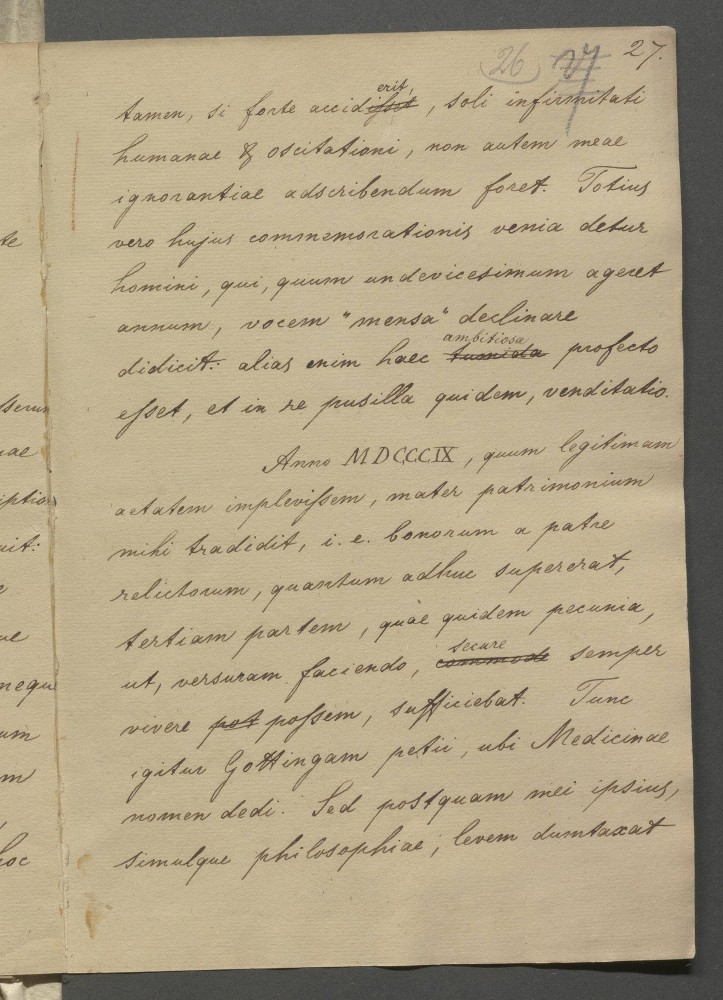 26 27 27.
erit,
tamen, si forte accidisset, soli infirmitati
humanae & oscitationi, non autem meae
ignorantiae adscribendum foret. Totius
vero hujus commemorationis venia detur
homini, qui, quum undevicesimum ageret
annum, vocem "mensa" declinare
didicit: alias enim haec tumida profecto
ambitiosa
esset, et in re pusilla quidem, venditatio.
Anno MDCCCIX, quum legitimam
aetatem implevissem, mater patrimonium
mihi tradidit, i. e. bonorum a patre
relictorum, quantum adhuc supererat,
tertiam partem, quae quidem pecunia,
secure
ut, versuram faciendo, commode semper
vivere pot possem, sufficiebat. Tunc
igitur Gottingam petii, ubi Medicinae
nomen dedi. Sed postquam mei ipsius,
simulque philosophiae, levem dumtaxat
te
serun
ae
iption
uit:
ue
neque
um
m
hoc